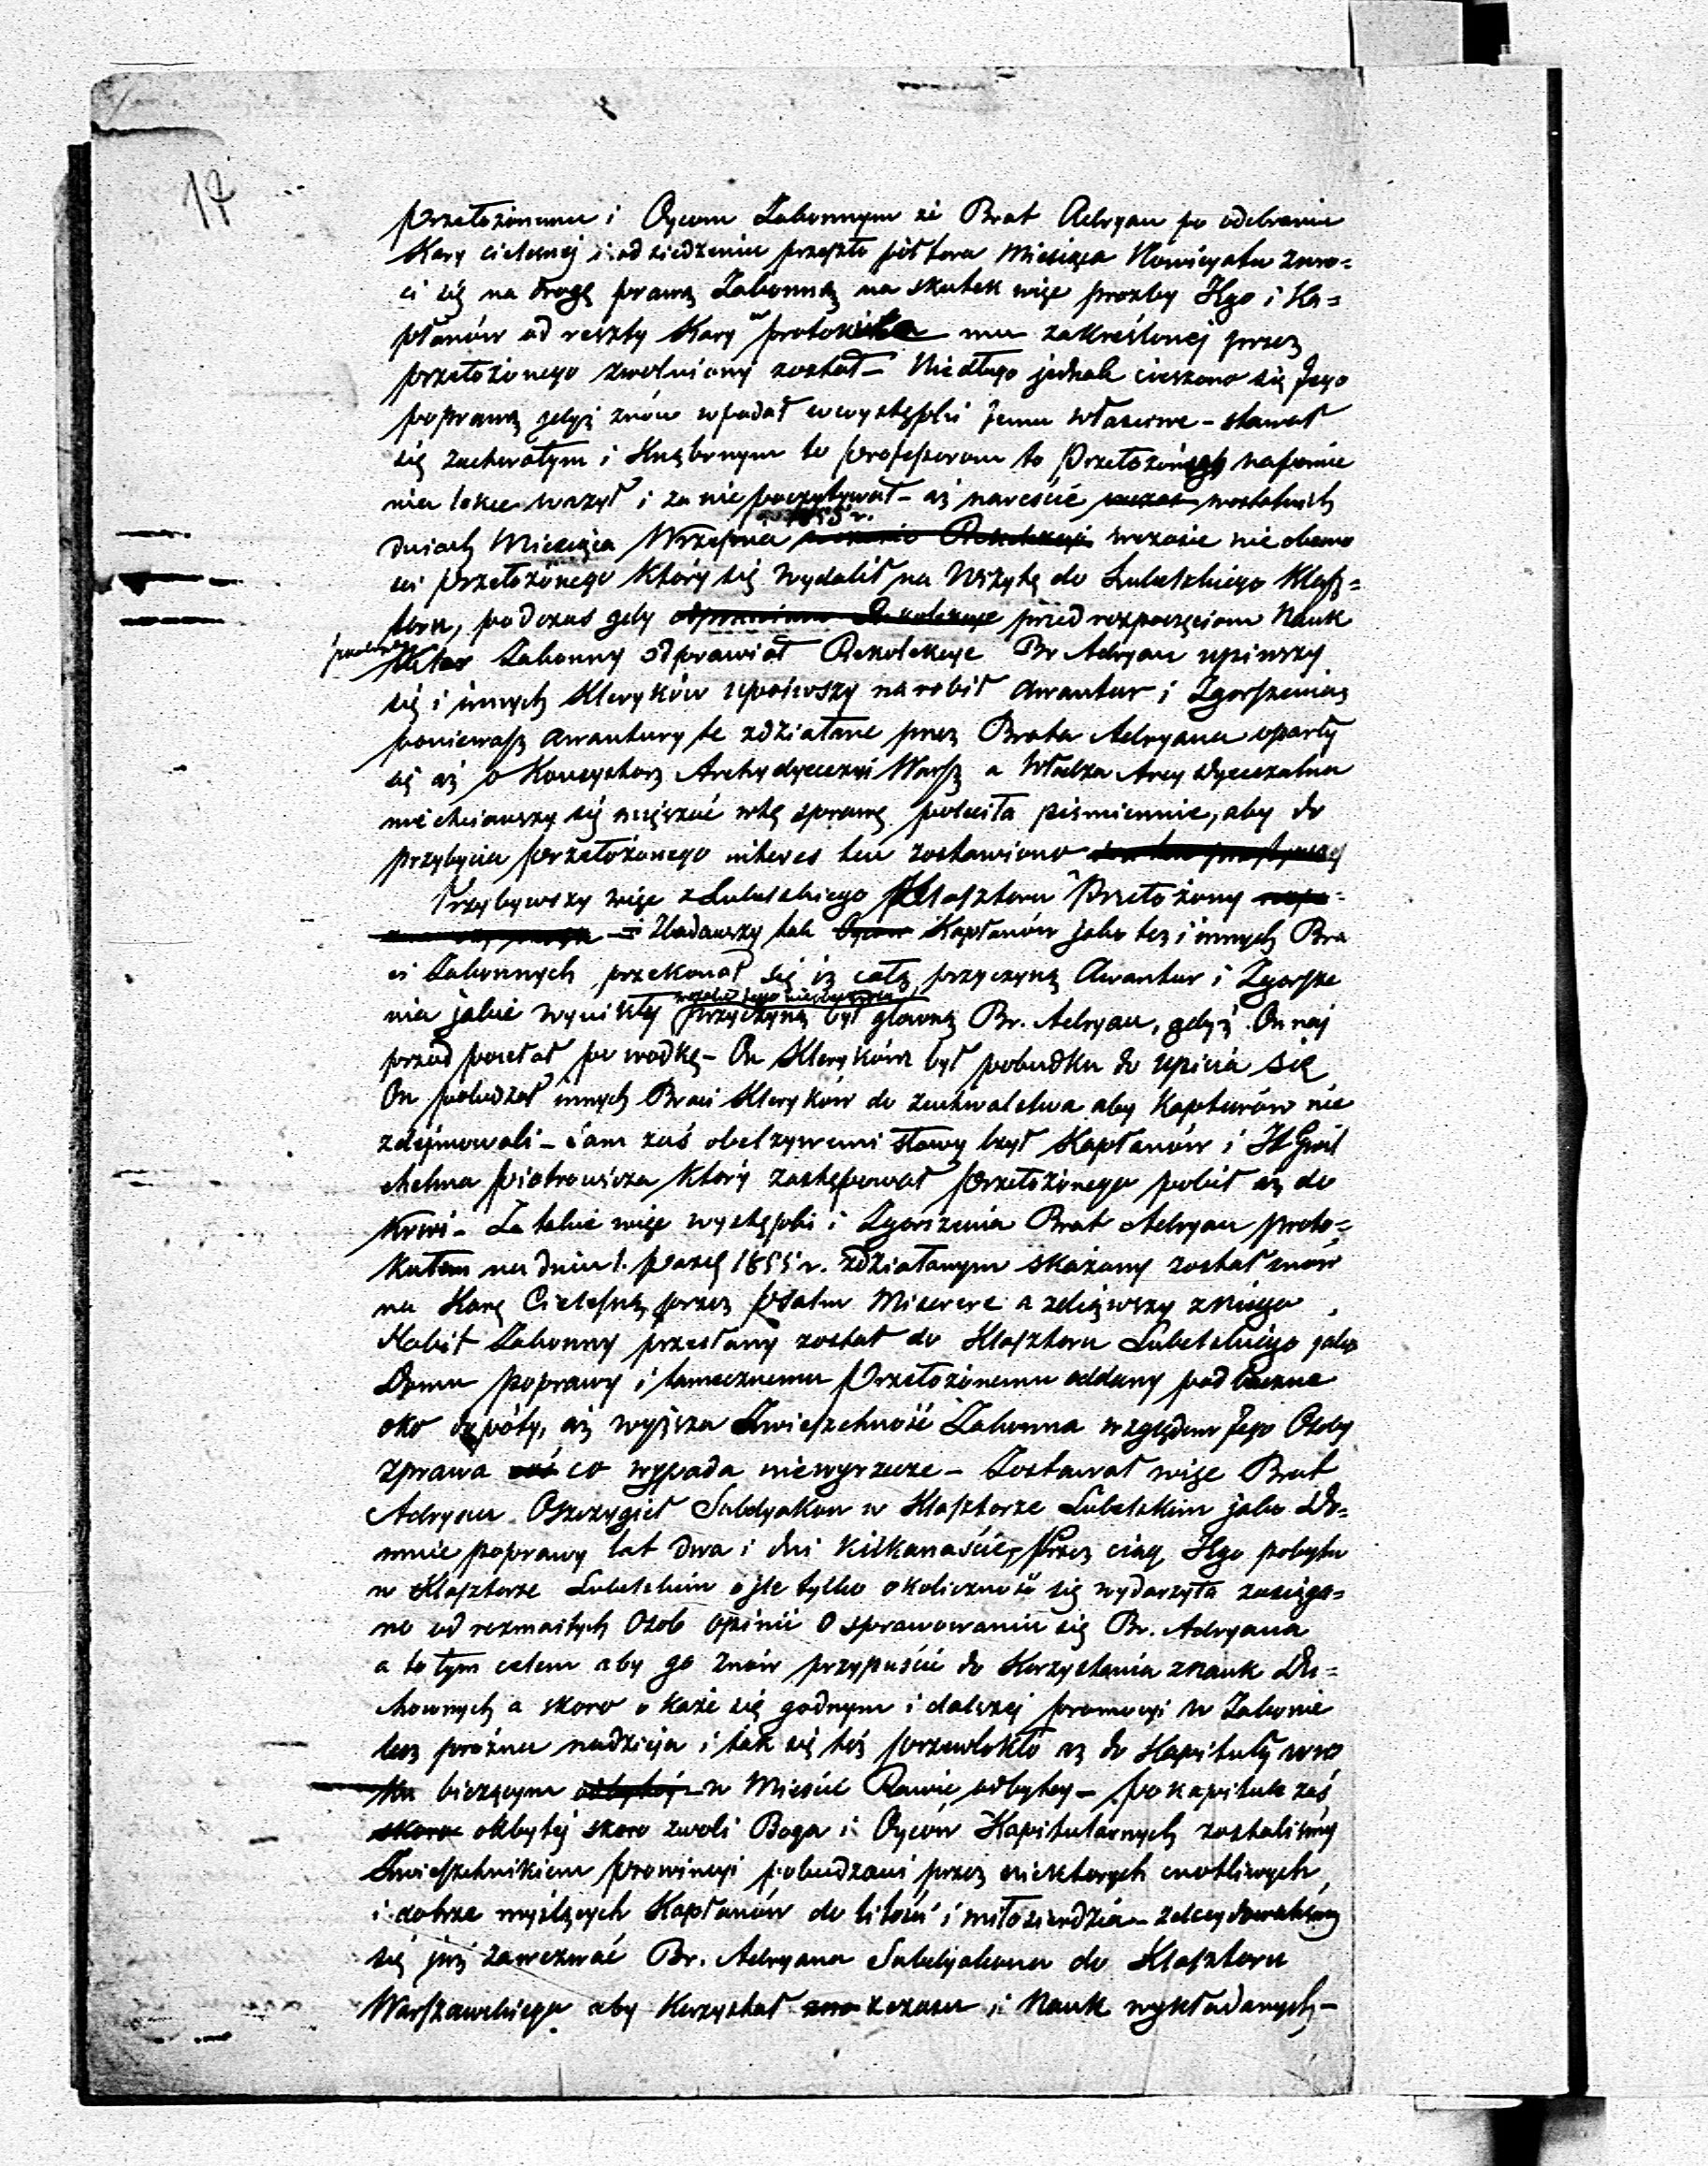 17
przełożonemu i Oycom Zakonnym że Brat Adryan po odebraniu
Kary cielesnej i odsiedzeniu przeszło półtora Miesiąca Nowicyatu zwro=
ci się na drogę prawą Zakonną na skutek więc prozby JXgo i Ka=
płanów od reszty Kary w mu zakreślonej przez
przełożonego zwolniony został — Niedługo jednak cieszono się Jego
poprawą gdyż znów wpadał w występki Jemu właściwe — stawał
się zuchwałym i Krnąbrnym to professorom to Przełożonego napomnie
nia lekce ważył i za nic poczytywał — aż nareście w ostatnich
1855 r.
dniach Miesiąca Września w czasie nieobecno
ści przełożonego który się wydalił na Wizytę do Lubelskiego Klasz=
toru, podczas gdy przed rozpoczęciem Nauk
Zakonny odprawiał Rekolekcye Br Adryan upiwszy
się i innych Kleryków upoiwszy narobił awantur i Zgorszenia,
ponieważ awantury te zdziałane przez Brata Adryana oparły
się aż o Konsystorz Archydyecezyi Warsz a Władza Arcydyecezalna
niechciawszy się mięszać w tę sprawę poleciła piśmiennie, aby do
przybycia przełożonego interes ten zostawiono
Przybywszy więc z Lubelskiego Klasztoru Przełożony
i Zbadawszy tak Kapłanów jako też i innych Bra
ci Zakonnych przekonał się iż całą przyczyną Awantur i Zgorsze
nia jakie wynikły w czasie jego niebytności
przyczyną był głowną Br. Adryan, gdyż On naj
przod posełał po wodkę — On Kleryków był pobudką do upicia się
On pobudzał innych Braci Kleryków do zuchwalstwa aby Kapturów nie
zdejmowali — sam zaś obelżywemi słowy lżył Kapłanów i X Gwil
chelma Piotrowicza który zastępował przełożonego pobił aż do
krwi — Za takie więc występki i Zgorszenia Brat Adryan proto=
kułem na dniu 1. paźdź 1855 r. zdziałanym skazany został znów
na Karę Cielesną przez psalm Miserere a zdjąwszy z niego
Habit Zakonny przesłany został do Klasztoru Lubelskiego jako
Domu poprawy i tamecznemu Przełożonemu oddany pod baczne
oko dopóty, aż wyższa Zwierzchność Zakonna względem Jego Osoby
zprawa co wypada niewyrzecze — Zostawał więc Brat
Adryan Oszczygieł Subdyakon w Klasztorze Lubelskim jako Do=
mie poprawy lat dwa i dni kilkanaście, Przez ciąg JXgo pobytu
w Klasztorze Lubelskim o ile tylko okoliczność się wydarzyła zasięga=
no od rozmaitych Osób opinii o sprawowaniu się Br. Adryana
a to tym celem aby go znów przypuścić do Korzystania z nauk Du=
chownych a skoro okaże się godnym i dalszej promocyi w Zakonie
lecz próżna nadzieja i tak się to przewlokło aż do Kapituły w ro
ku bieżącym w Mieście Rawie odbytej — po kapitule zaś
odbytej skoro z woli Boga i Oyców Kapitularnych zostaliśmy
Zwierzchnikiem prowincyi pobudzani przez niektorych cnotliwych
i dobrze myślących Kapłanów do litości i miłosierdzia — zdecydowaliśmy
się już zawezwać Br. Adryana Subdyakona do Klasztoru
Warszawskiego aby korzystał z czasu i Nauk wykładanych —